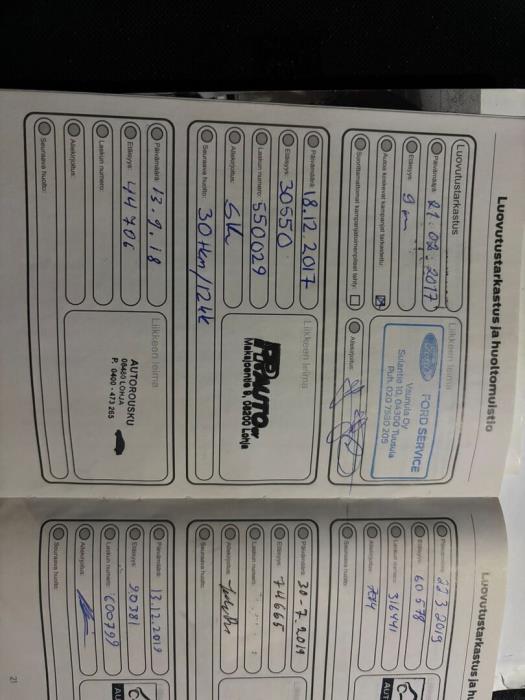 Luovutustarkastus ja huoltomuistio
Luovutustarkastus
Liikkeen leima
Päivämäärä: 21.02.2017
Etäisyys: 9 km
Autoa koskevat kampanjat tarkastettu:
Suorittamattomat kampanjatoimenpiteet tehty:
Allekirjoitus:
Ford
FORD SERVICE
Sulantie 10, 04300 Tuusula
Puh. 020 7580 205
Päivämäärä: 18.12.2017
Etäisyys: 30550
Laskun numero: 550029
Allekirjoitus:
Seuraava huolto: 30 tkm/12kk
Liikkeen leima
08200 Lohja
Päivämäärä: 13.9.18
Etäisyys: 44706
Laskun numero:
Allekirjoitus:
Seuraava huolto:
Liikkeen leima
AUTOROUSKU
LOHJA
P. 0400 - 473 265
Luovutustarkastus ja hu
Päivämäärä: 22.3.2019
Etäisyys: 60578
Laskun numero: 316441
Allekirjoitus:
Seuraava huolto:
AUT
Päivämäärä: 30.7.2019
Etäisyys: 74665
Laskun numero:
Allekirjoitus:
Seuraava huolto:
Päivämäärä: 13.12.2019
Etäisyys: 90781
Laskun numero: 600799
Allekirjoitus:
Seuraava huolto:
AU
21